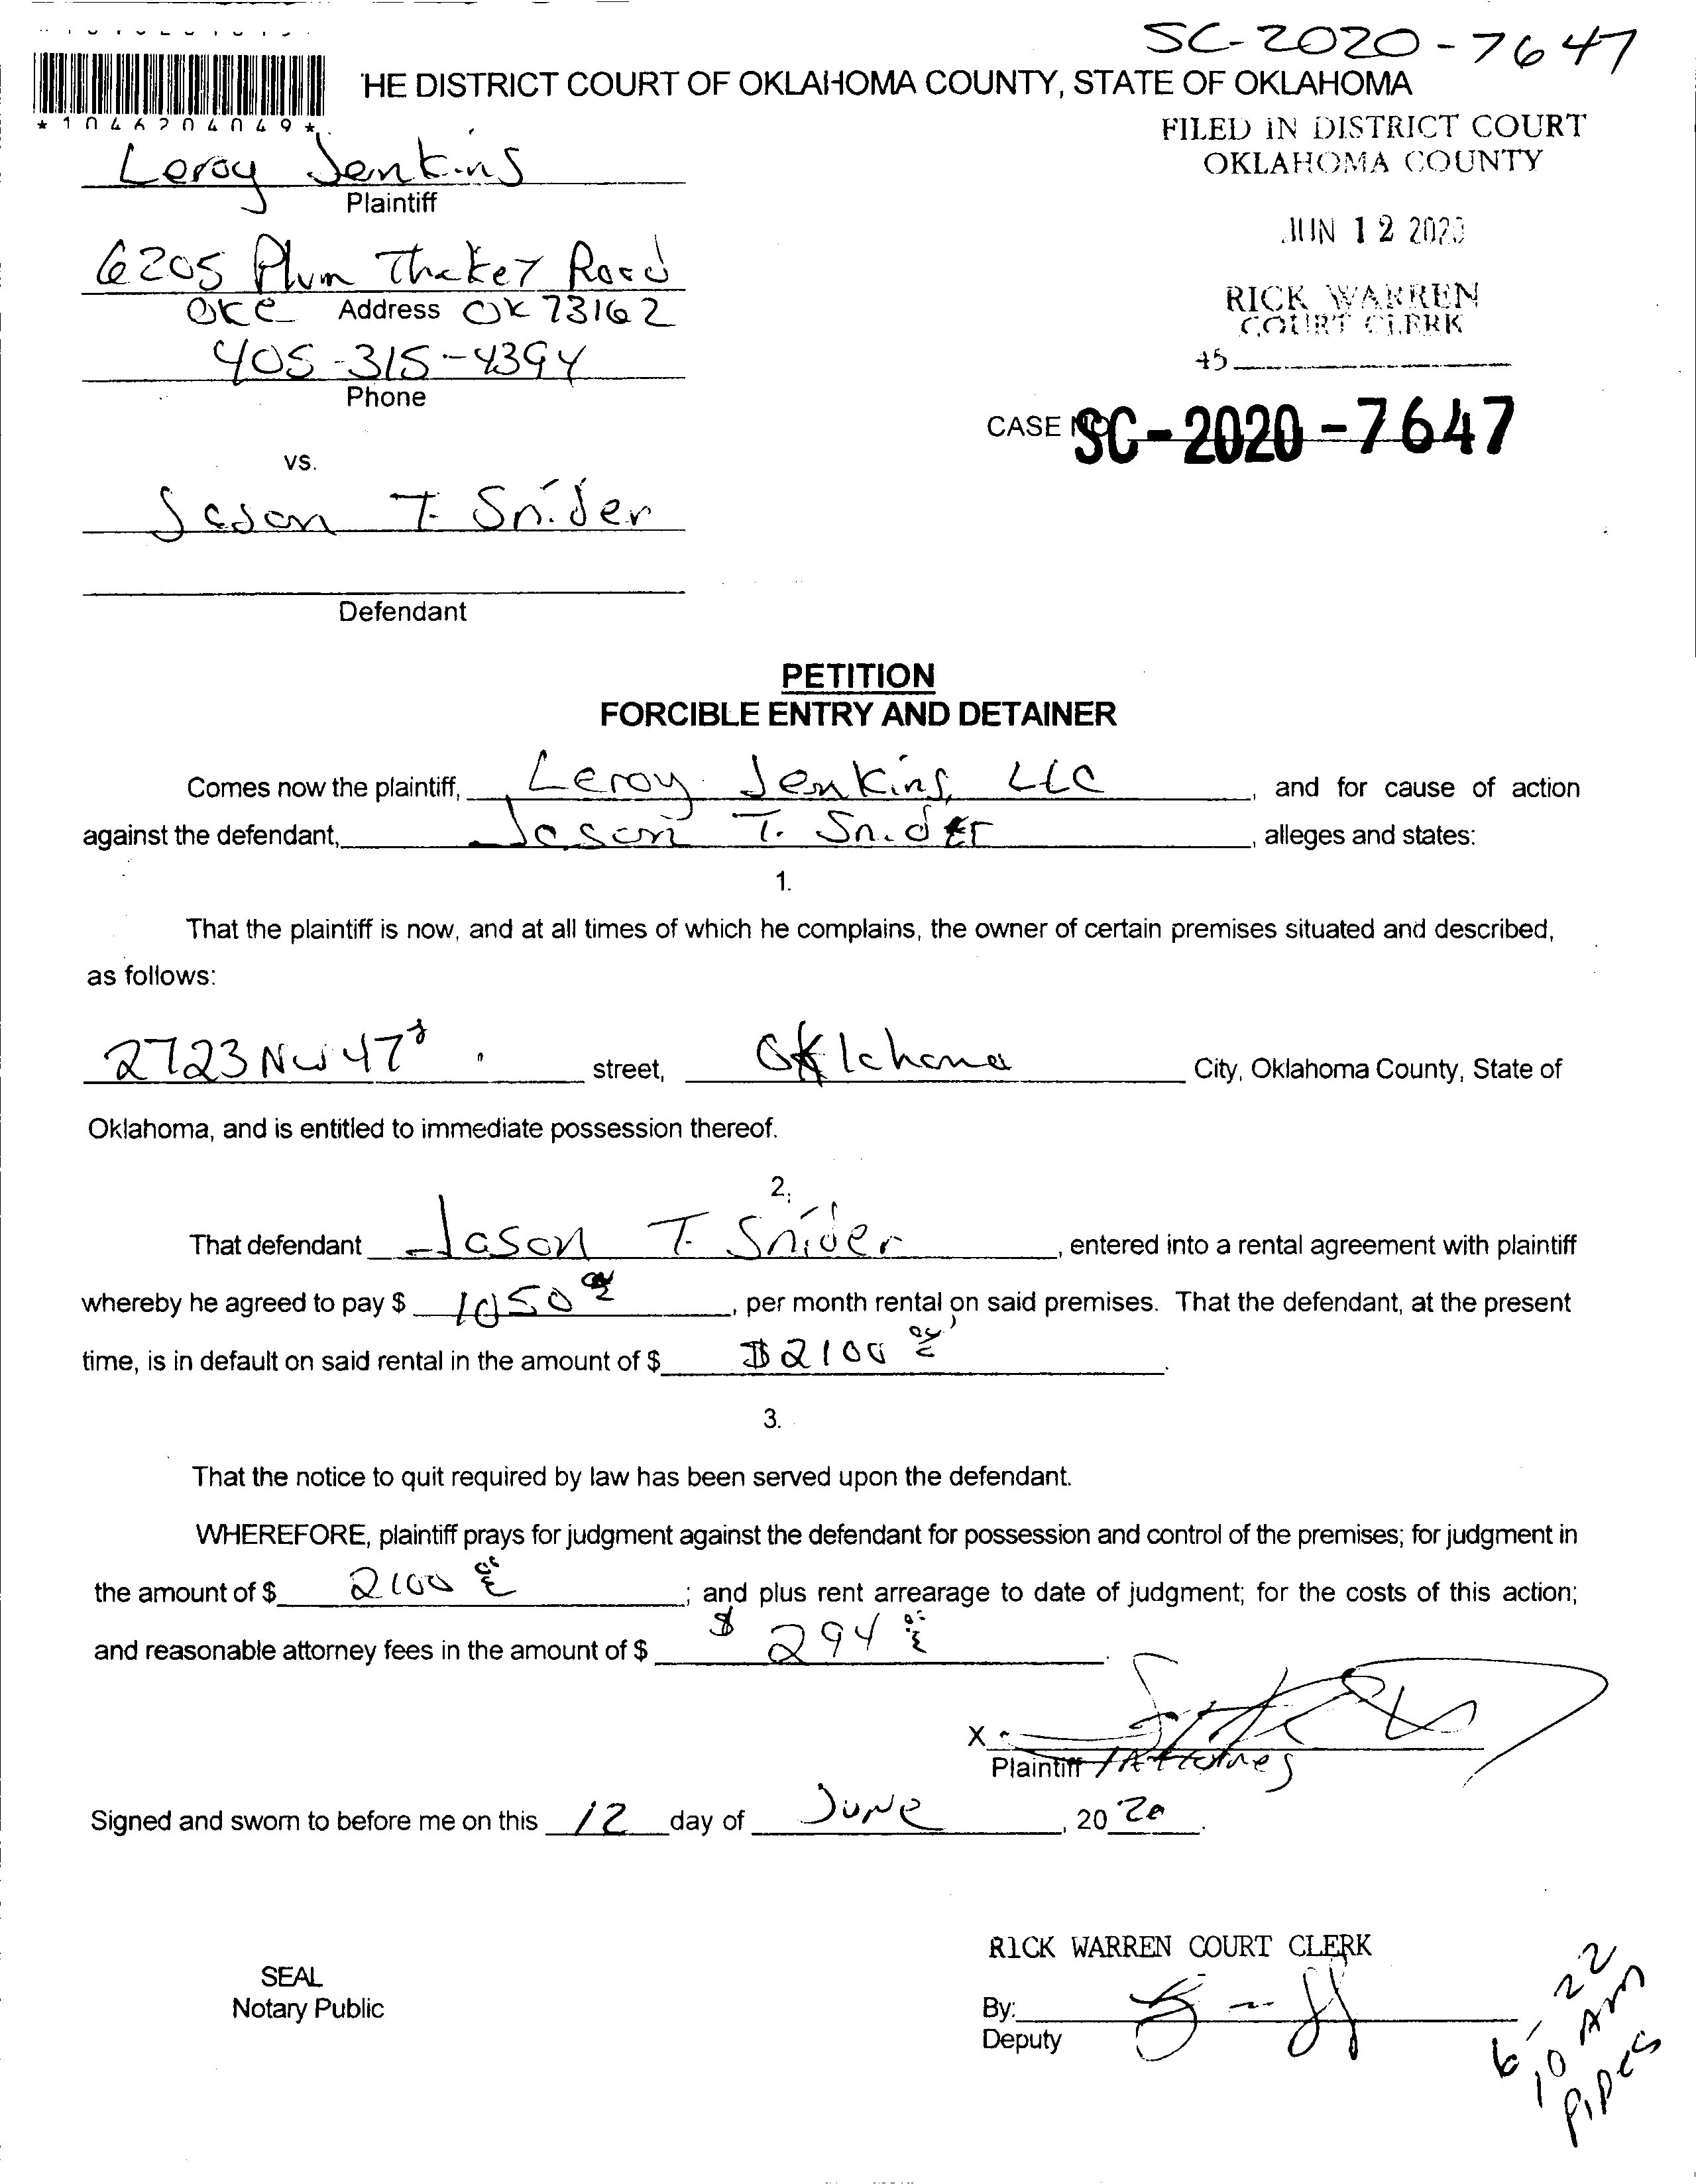 SC-2020-7647
*1046204049*
HE DISTRICT COURT OF OKLAHOMA COUNTY, STATE OF OKLAHOMA
FILED IN DISTRICT COURT
OKLAHOMA COUNTY
Leroy Jenkins
Plaintiff
JUN 12 2020
6205 Plum Thicket Road
OKC Address OK 73162
RICK WARREN
COURT CLERK
405-315-4394
Phone
45
CASE NO SC-2020-7647
vs.
Jason T. Snider
Defendant
PETITION
FORCIBLE ENTRY AND DETAINER
Comes now the plaintiff, Leroy Jenkins, LLC, and for cause of action
against the defendant, Jason T. Snider, alleges and states:
1.
That the plaintiff is now, and at all times of which he complains, the owner of certain premises situated and described,
as follows:
2723 NW 47 street, Oklahoma City, Oklahoma County, State of
Oklahoma, and is entitled to immediate possession thereof.
2.
That defendant Jason T. Snider, entered into a rental agreement with plaintiff
whereby he agreed to pay $ 1050 00, per month rental on said premises. That the defendant, at the present
time, is in default on said rental in the amount of $ $2100 00.
3.
That the notice to quit required by law has been served upon the defendant.
WHEREFORE, plaintiff prays for judgment against the defendant for possession and control of the premises; for judgment in
the amount of $ 2100 00; and plus rent arrearage to date of judgment; for the costs of this action;
and reasonable attorney fees in the amount of $ $ 294 00.
X
Plaintiff / Attorney
Signed and sworn to before me on this 12 day of June, 20 20.
RICK WARREN COURT CLERK
SEAL
Notary Public
By:
Deputy
6-22
10 AM
Pipes